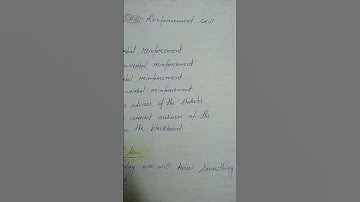 Skill: Reinforcement Skill
verbal reinforcement
verbal reinforcement
verbal reinforcement
verbal reinforcement
advices of the students
correct answer of the
the blackboard.
Aim
we will know something